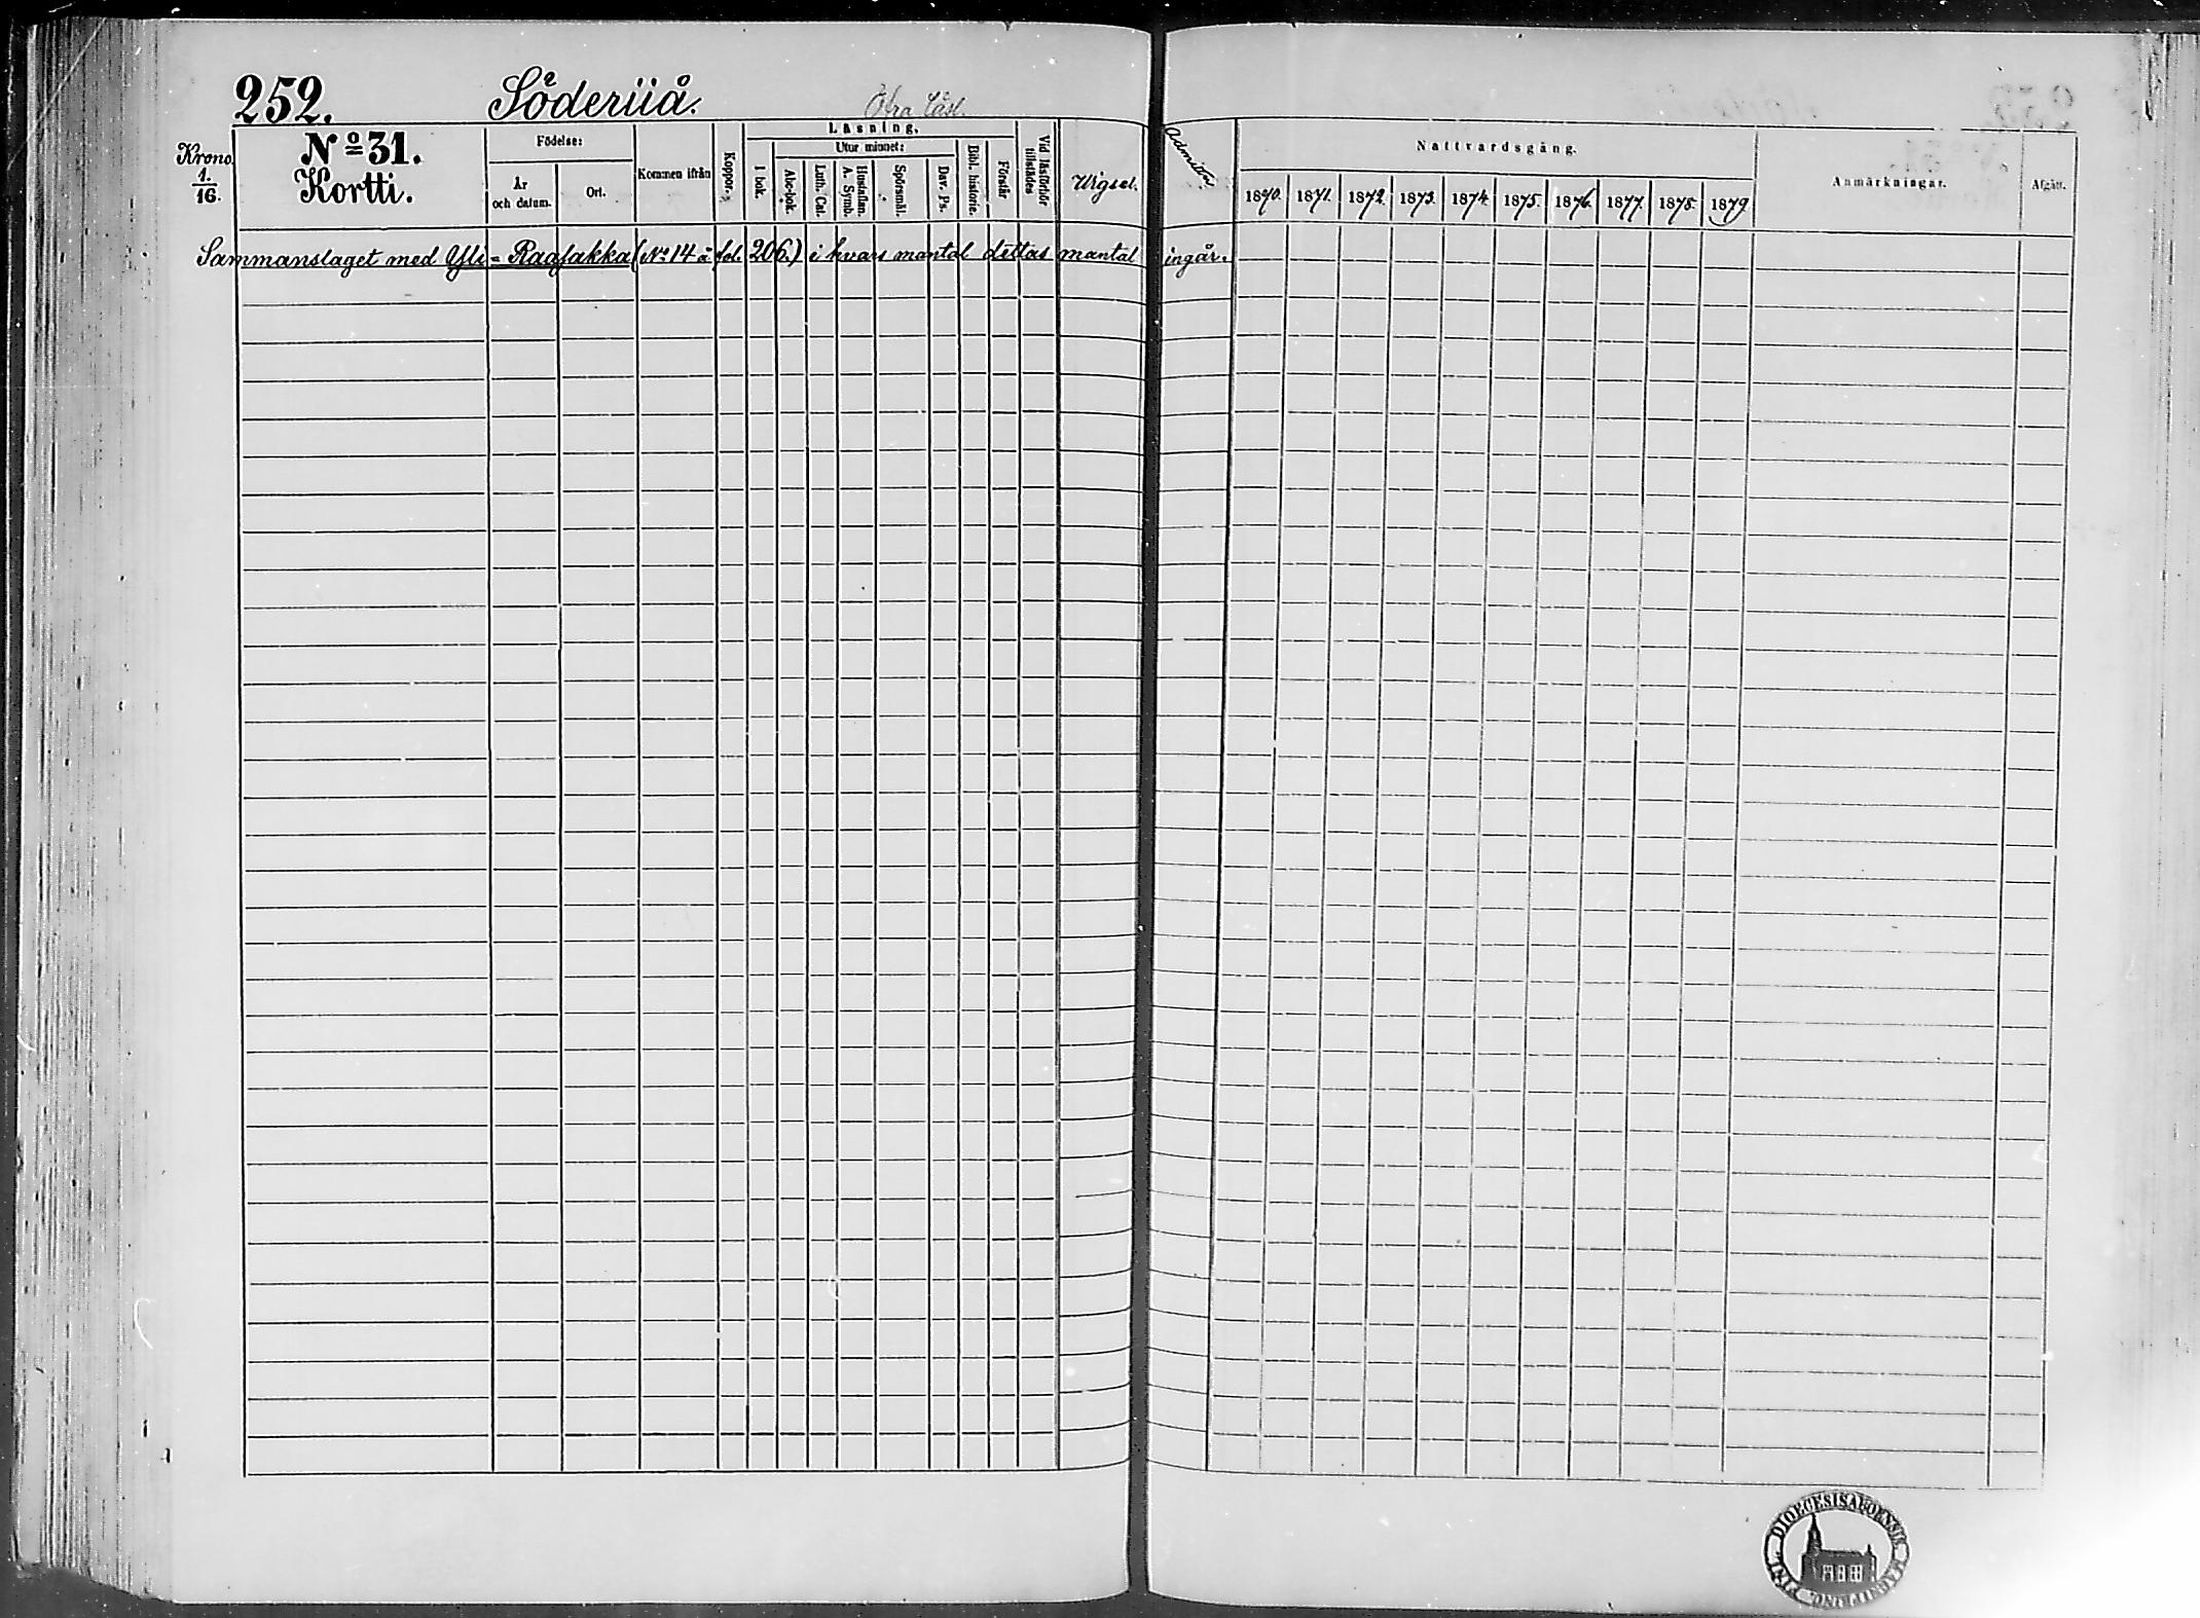 252. Söderiiå.
Krono.
1.
16.
No 31.
Kortti.
Födelse:
År
och datum.
Ort.
Kommen ifrån
Koppor.
Läsning.
I bok.
Utur minnet:
Abc-bok.
Luth. Cat.
A. Symb.
Hustaflan.
Spörsmål.
Dav. Ps.
Bibl. historie.
Förstår
Vid läsförhör
tillstädes
Wigsel.
Nattvardsgång.
1870. 1871. 1872. 1873. 1874. 1875. 1876. 1877. 1878. 1879.
Anmärkningar.
Afgått.
Sammanslaget med Yli=Raa (No 14 å fol. 206.) i hvars mantal dettas mantal ingår.